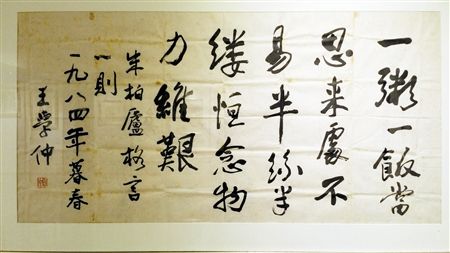 一粥一飯當
思来處不
易半絲半
缕恒念物
力維艱
朱柏廬格言
一則
一九八四年暮春
王學仲